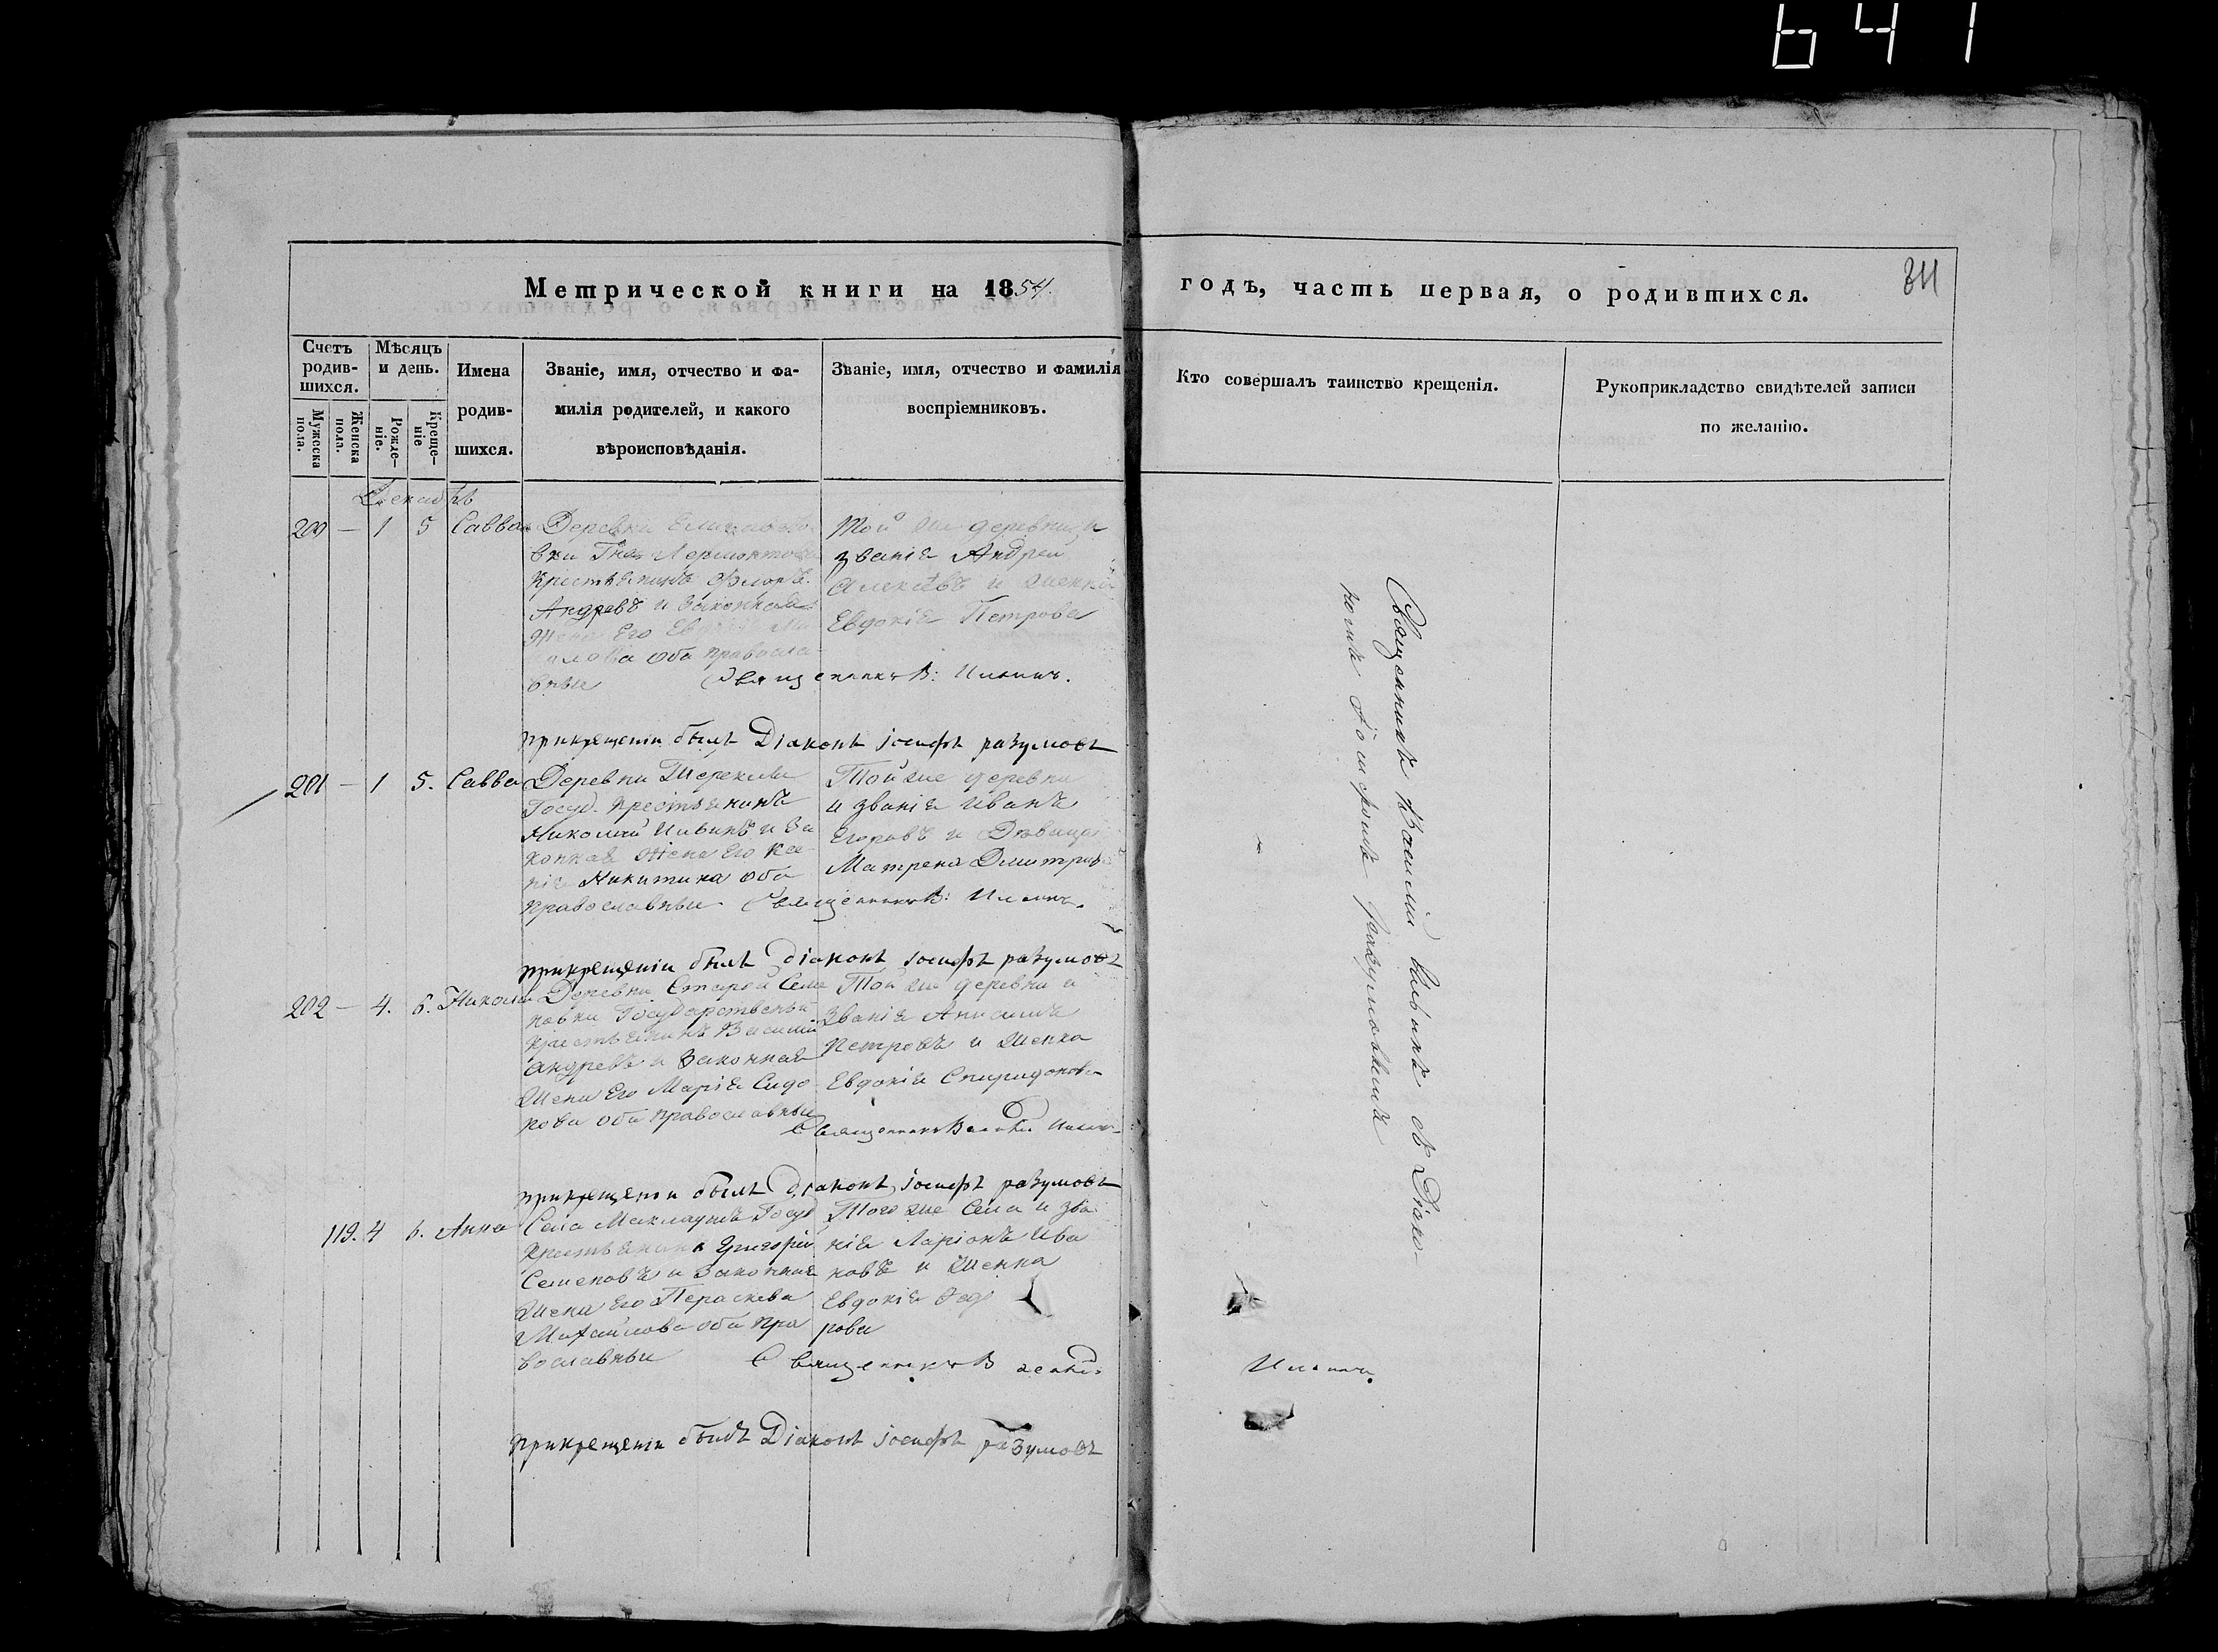 641
Метрической книги на 1854.
годъ, часть первая, о родившихся.
Счетъ родив-
шихся.
Мѣсяцъ
и день.
Мужеска пола.
Женска пола.
Рожде-
ніе.
Креще-
ніе
Имена
родив-
шихся.
Званіе, имя, отчество и фа-
милія родителей, и какого
вѣроисповѣданія.
Званіе, имя, отчество и фамилія
воспріемниковъ.
Кто совершалъ таинство крещенія.
Рукоприкладство свидѣтелей записи
по желанію.
Декабрь
200 — 1 5 Савва
Деревни Елизавето-
вки Гна Лермонтова
крестьянинъ Флоръ
Андревъ и законная
жена Его
оба правосла-
вные
Той же деревни и
званія Андрей
Алексѣвъ и женка
Евдокія Петрова
Священникъ В: Ильинъ.
при крещеніи былъ Діаконъ іосифъ разумовъ
201 — 1 5. Савва
Деревни
Госуд. крестьянинъ
Николай Ильинъ и за
конная жена Его Ксе-
нія Никитина оба
православные
Той же деревни
и званія Иванъ
Егоровъ и Дѣвица
Матрена Дмитрiева
Священникъ В: Ильинъ.
при крещеніи былъ діаконъ іосифъ разумовъ
202 — 4. 6. Николай
Деревни Старой Семе
новки Государственный
крестьянинъ Василій
андревъ и Законная
жена Его Марія Сидо
рова оба православные
Той же деревни и
званія Анисимъ
Петровъ и женка
Евдокія Спиридонова
Священникъ Василій Ильинъ
при крещеніи былъ діаконъ іосифъ разумовъ
119. 4 6. Анна
Села Маклаушъ Госуд
крестьянинъ Григорій
Семеновъ и Законная
жена Его Пераскева
Михайлова оба пра
вославные
Того же Села и зва
нія Ларіонъ Ива
новъ и женка
Евдокія Федо
рова
Священникъ Василій
Ильинъ.
при крещеніи былъ Діаконъ іосифъ разумовъ
Священникъ Василій Ильинъ съ Діако-
номъ Іосифомъ разумовымъ